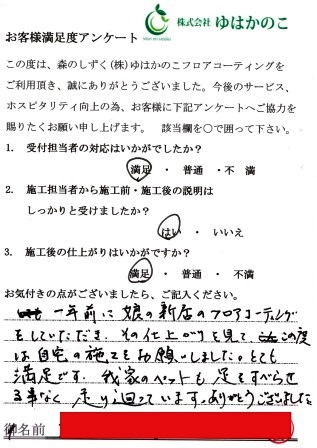 株式会社 ゆはかのこ
お客様満足度アンケート
この度は、森のしずく(株)ゆはかのこフロアコーティングを
ご利用頂き、誠にありがとうございました。今後のサービス、
ホスピタリティ向上の為、お客様に下記アンケートへご協力を
賜りたくお願い申し上げます。 該当欄を○で囲って下さい。
1. 受付担当者の対応はいかがでしたか?
満足 ・ 普通 ・ 不満
2. 施工担当者から施工前・施工後の説明は
しっかりと受けましたか?
はい ・ いいえ
3. 施工後の仕上がりはいかがですか?
満足 ・ 普通 ・ 不満
お気付きの点がございましたら、ご記入ください。
一年前に娘の新居のフロアコーティング
をしていただき、その仕上がりを見て、この度
は自宅の施工をお願いしました。とても
満足です。我家のペットも足をすべらせ
る事なく走り廻っています。ありがとうございました
御名前